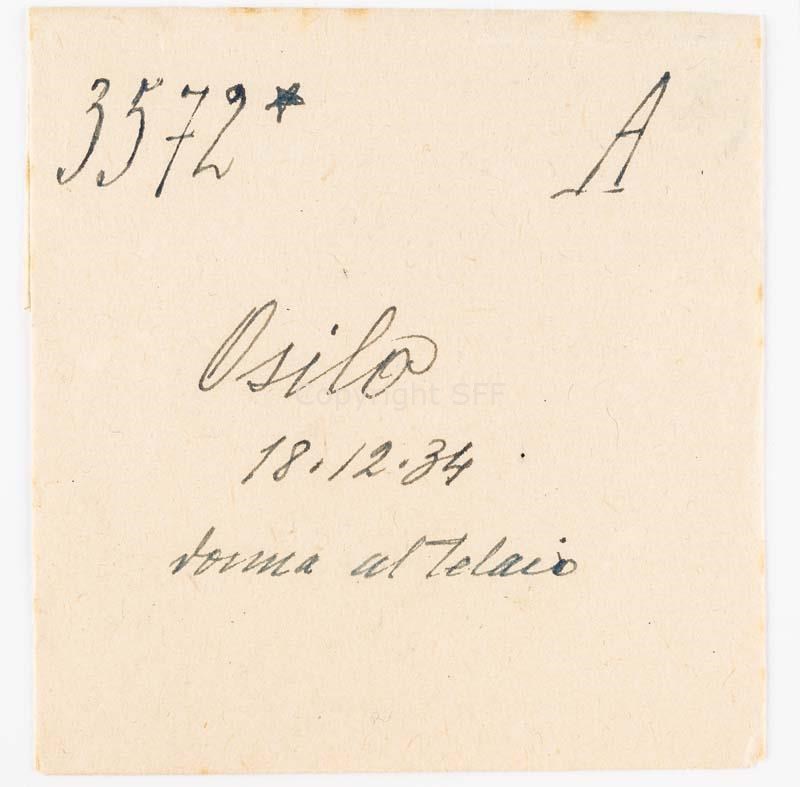 3572* A
Osilo
Copyright SFF
18.12.34
donna al telaio